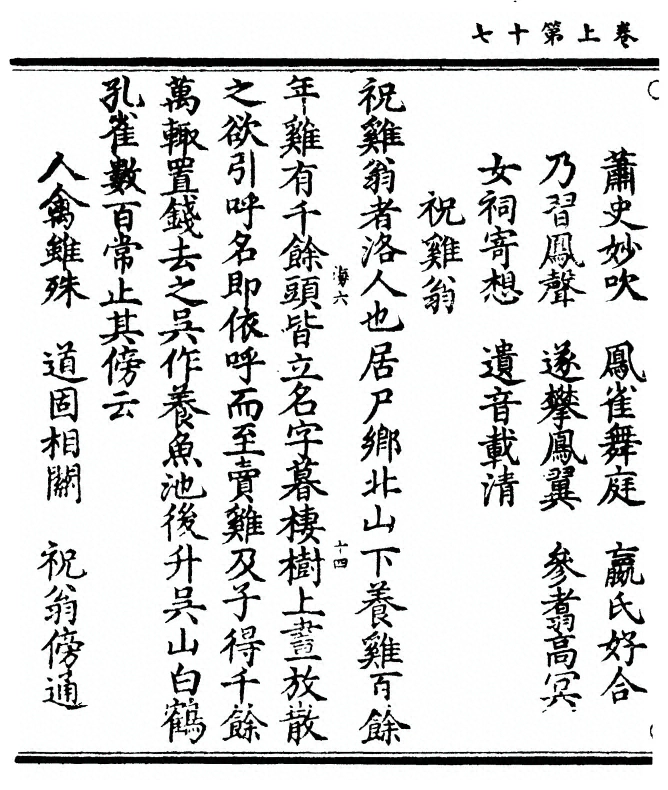 卷上第十七
蕭史妙吹　鳳雀舞庭　嬴氏好合
乃習鳳聲　遂攀鳳翼　參翥高冥
女祠寄想　遺音載清
祝雞翁
祝雞翁者洛人也居尸鄉北山下養雞百餘
海六
十四
年雞有千餘頭皆立名字暮棲樹上晝放散
之欲引呼名即依呼而至賣雞及子得千餘
萬輙置錢去之吳作養魚池後升吳山白鶴
孔雀數百常止其傍云
人禽雖殊　道固相關　祝翁傍通